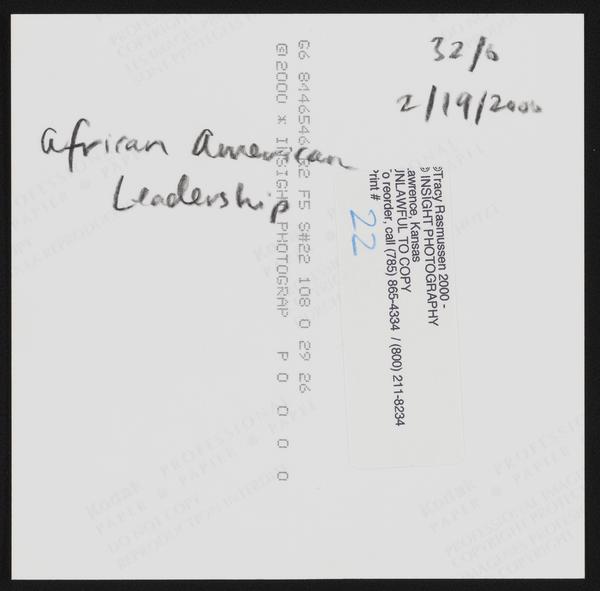 32/0
2/19/2000
African American
Leadership
G6 8446546 R2 F5 S#22 108 0 29 26
@2000 * INSIGHT PHOTOGRAP P 0 0 0 0
Tracy Rasmussen 2000 -
INSIGHT PHOTOGRAPHY
awrence, Kansas
NLAWFUL TO COPY
o reorder, call (785) 865-4334 / (800) 211-8234
rint # 22
Kodak
PROFESSIONAL
PAPER PAPIER
DO NOT COPY